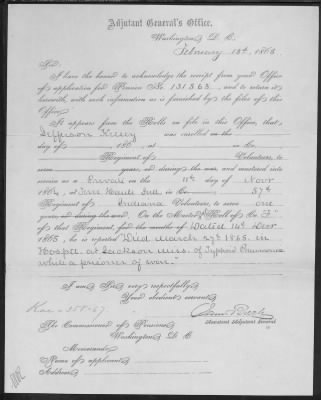 Adjutant General's Office,
Washington D. C.
February 13th, 1868.
Sir:
I have the honor to acknowledge the receipt from your Office
of application for Pension No. 131363, and to return it
herewith, with such information as is furnished by the files of this
Office.
It appears from the Rolls on file in this Office, that
Jefferson was enrolled on the
day of 186 , at in Co.
Regiment of Volunteers, to
serve years, or during the war, and mustered into
service as a Private on the 11th day of Novr
1864, at Terre Haute Ind, in Co. 57th
Regiment of Indiana Volunteers, to serve one
year, or during the war. On the Muster Roll of Co. F
of that Regiment, for the months of Dated 14th Decr
1865, he is reported "Died March 27th 1865. in
Hospital at Jackson Miss. of Typhoid Pneumonia
while a prisoner of war."
I am Sir, very respectfully,
Your obedient servant,
Assistant Adjutant General
The Commissioner of Pensions
Washington D. C.
Memoranda:
Name of applicant
Address